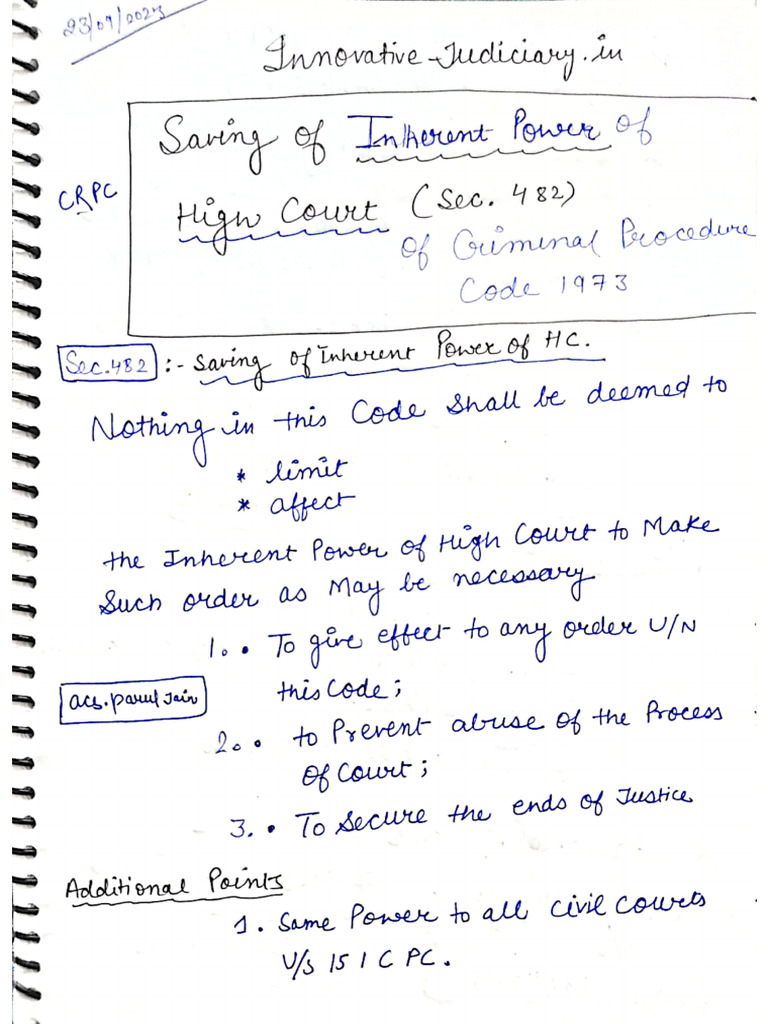 23/09/2023
Innovative-Judiciary.in
Saving of Inherent Power of
CRPC
High Court (Sec. 482)
of Criminal Procedure
Code 1973
Sec.482 :- Saving of Inherent Power of HC.
Nothing in this Code shall be deemed to
* limit
* affect
the Inherent Power of High Court to Make
Such order as May be necessary
1. • To give effect to any order U/N
this Code;
acs.parul Jain
2. • to Prevent abuse of the Process
of Court;
3. • To Secure the ends of Justice
Additional Points
1. Same Power to all civil courts
U/S 151 C PC.